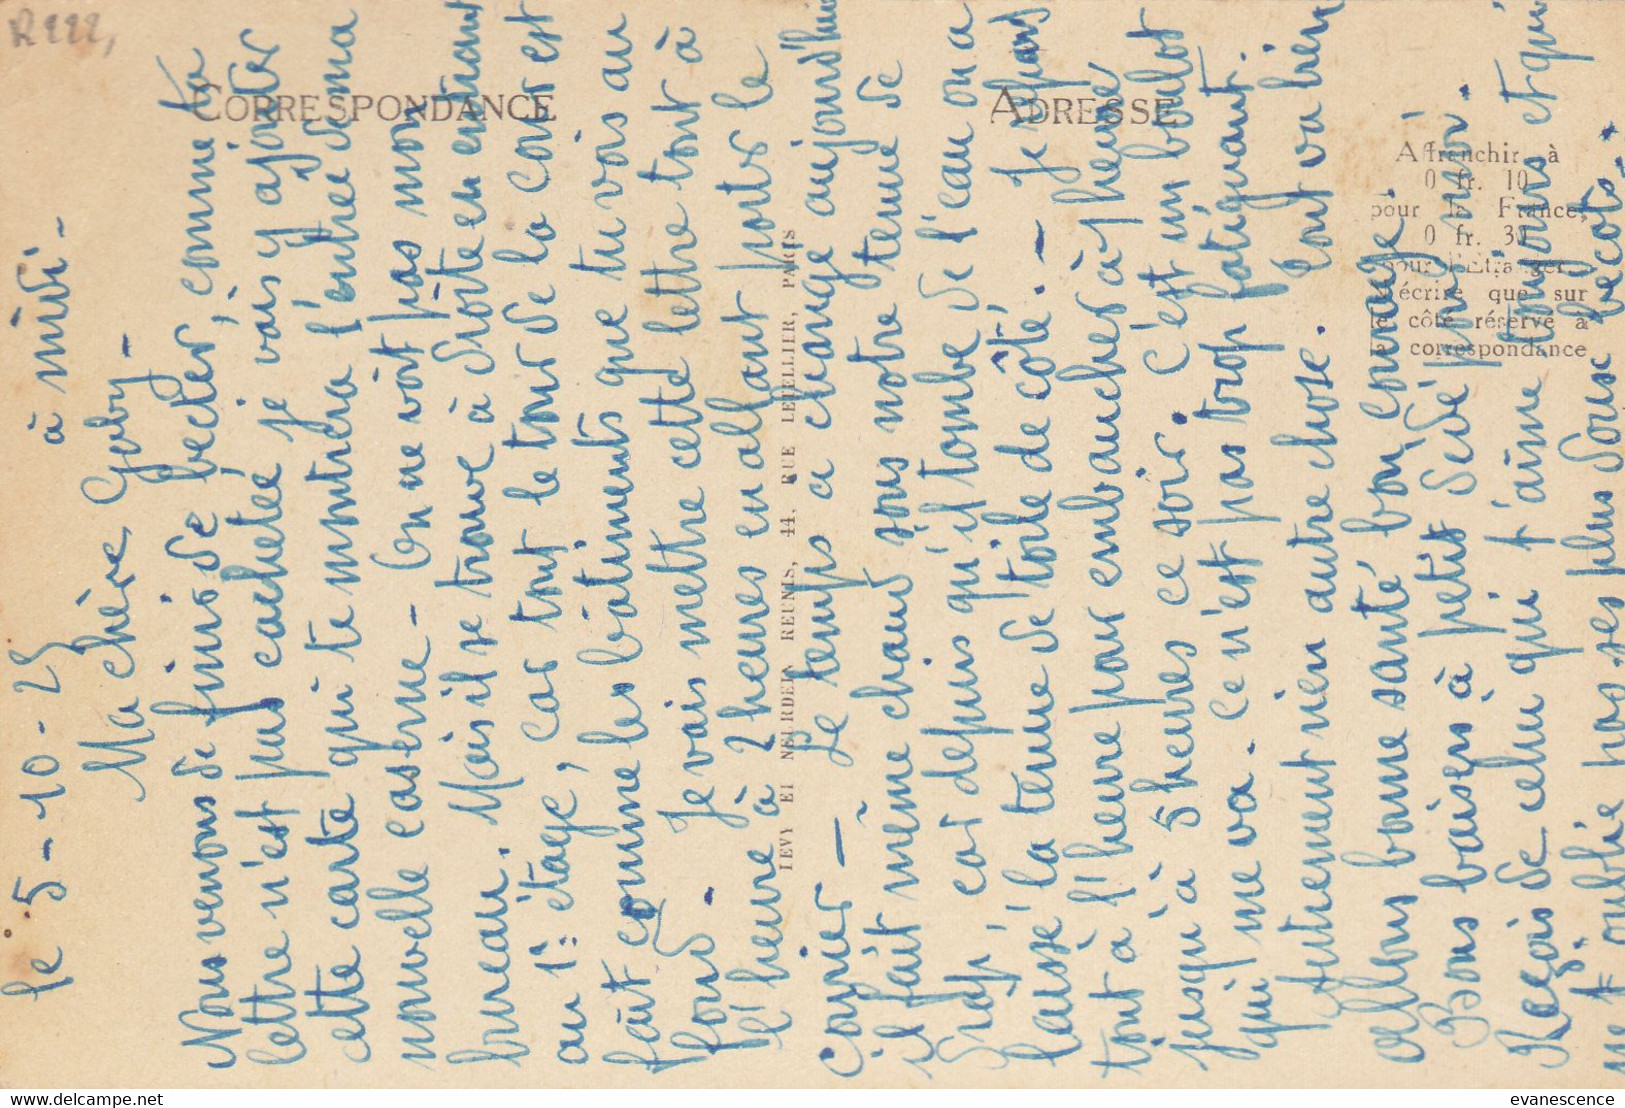 R222,
le 5-10-25 à midi -
Ma chère Gaby -
Nous venons de finir de becter, comme ta
lettre n'est pas cachetée je vais y ajouter
cette carte qui te montrera l'entrée de ma
nouvelle caserne - On ne voit pas mon
bureau. Mais il se trouve à droite en entrant
au 1er étage, car tout le tour de la cour est
fait comme les bâtiments que tu vois au
fond. - Je vais mettre cette lettre tout à
l'heure à 2 heures en allant porter le
courrier - Le temps a changé aujourd'hui
il fait même chaud sous notre tenue de
drap, car depuis qu'il tombe de l'eau on a
laissé la tenue de toile de côté. - Je repars
tout à l'heure pour embaucher à 1 heure
jusqu'à 5 heures ce soir. C'est un boulot
qui me va. Ce n'est pas trop fatiguant.
Autrement rien autre chose. Tout va bien
Allons bonne santé bon courage.
Bons baisers à petit Dédé
Reçois de celui qui t'aime toujours et qui
ne t'oublie pas ses plus doux bécots.
CORRESPONDANCE
ADRESSE
Affranchir à
0 fr. 10
pour la France,
0 fr. 30
pour l'Etranger
écrire que sur
le côté réservé à
la correspondance
LEVY ET NEURDEIN REUNIS, 44, RUE LETELLIER, PARIS
delcampe.net
evanescence